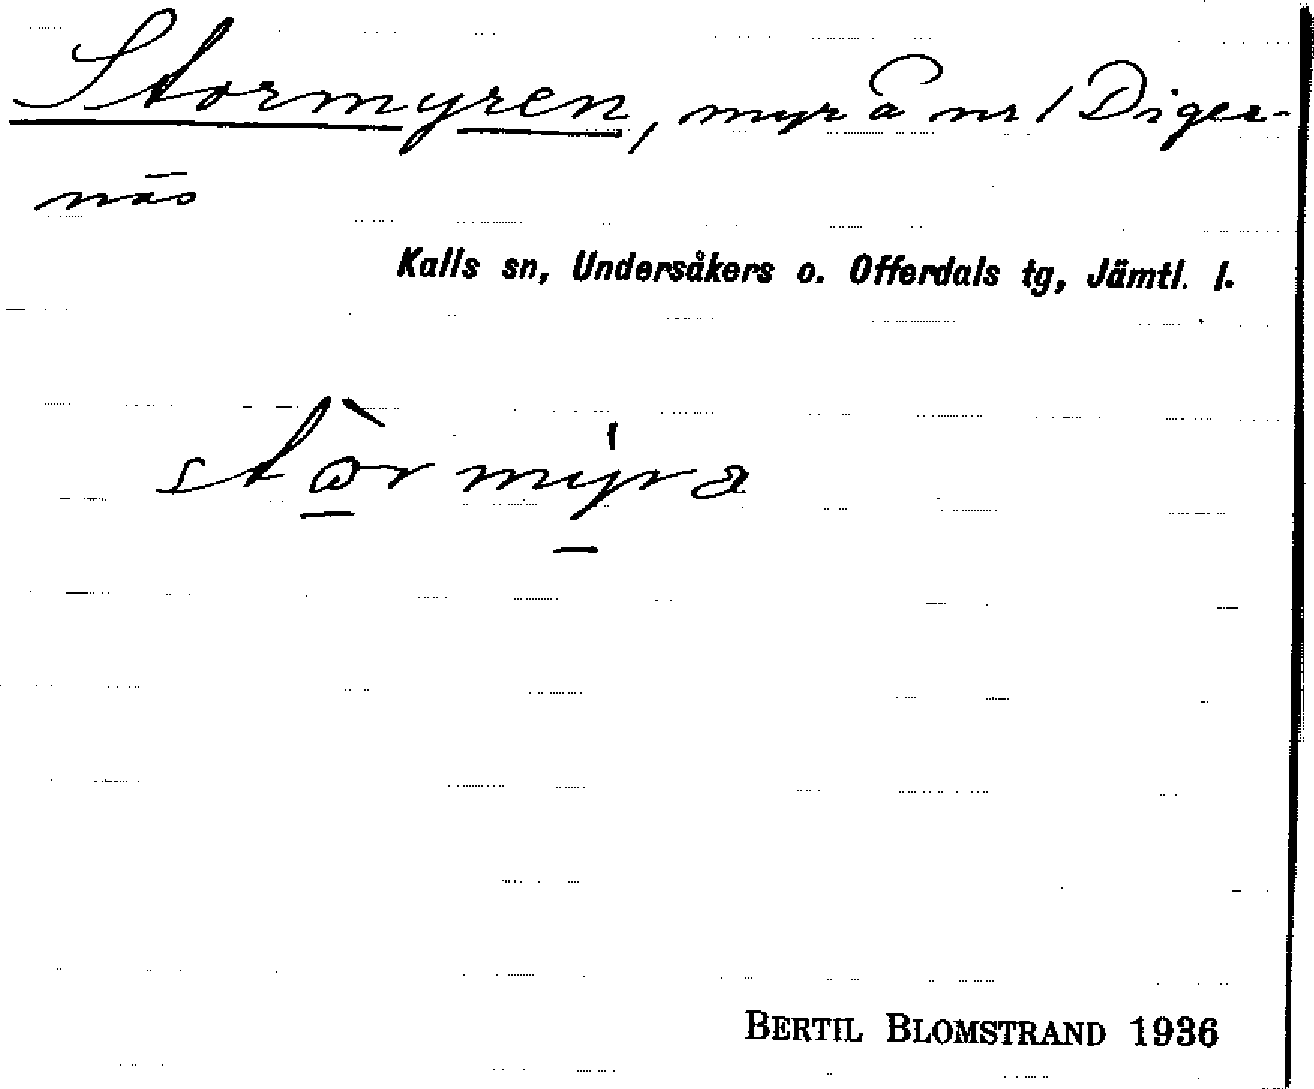 Stormyren, myr å nr 1 Diger-
näs
Kalls sn, Undersåkers o. Offerdals tg, Jämtl. l.
stòrmýra
BERTIL BLOMSTRAND 1936